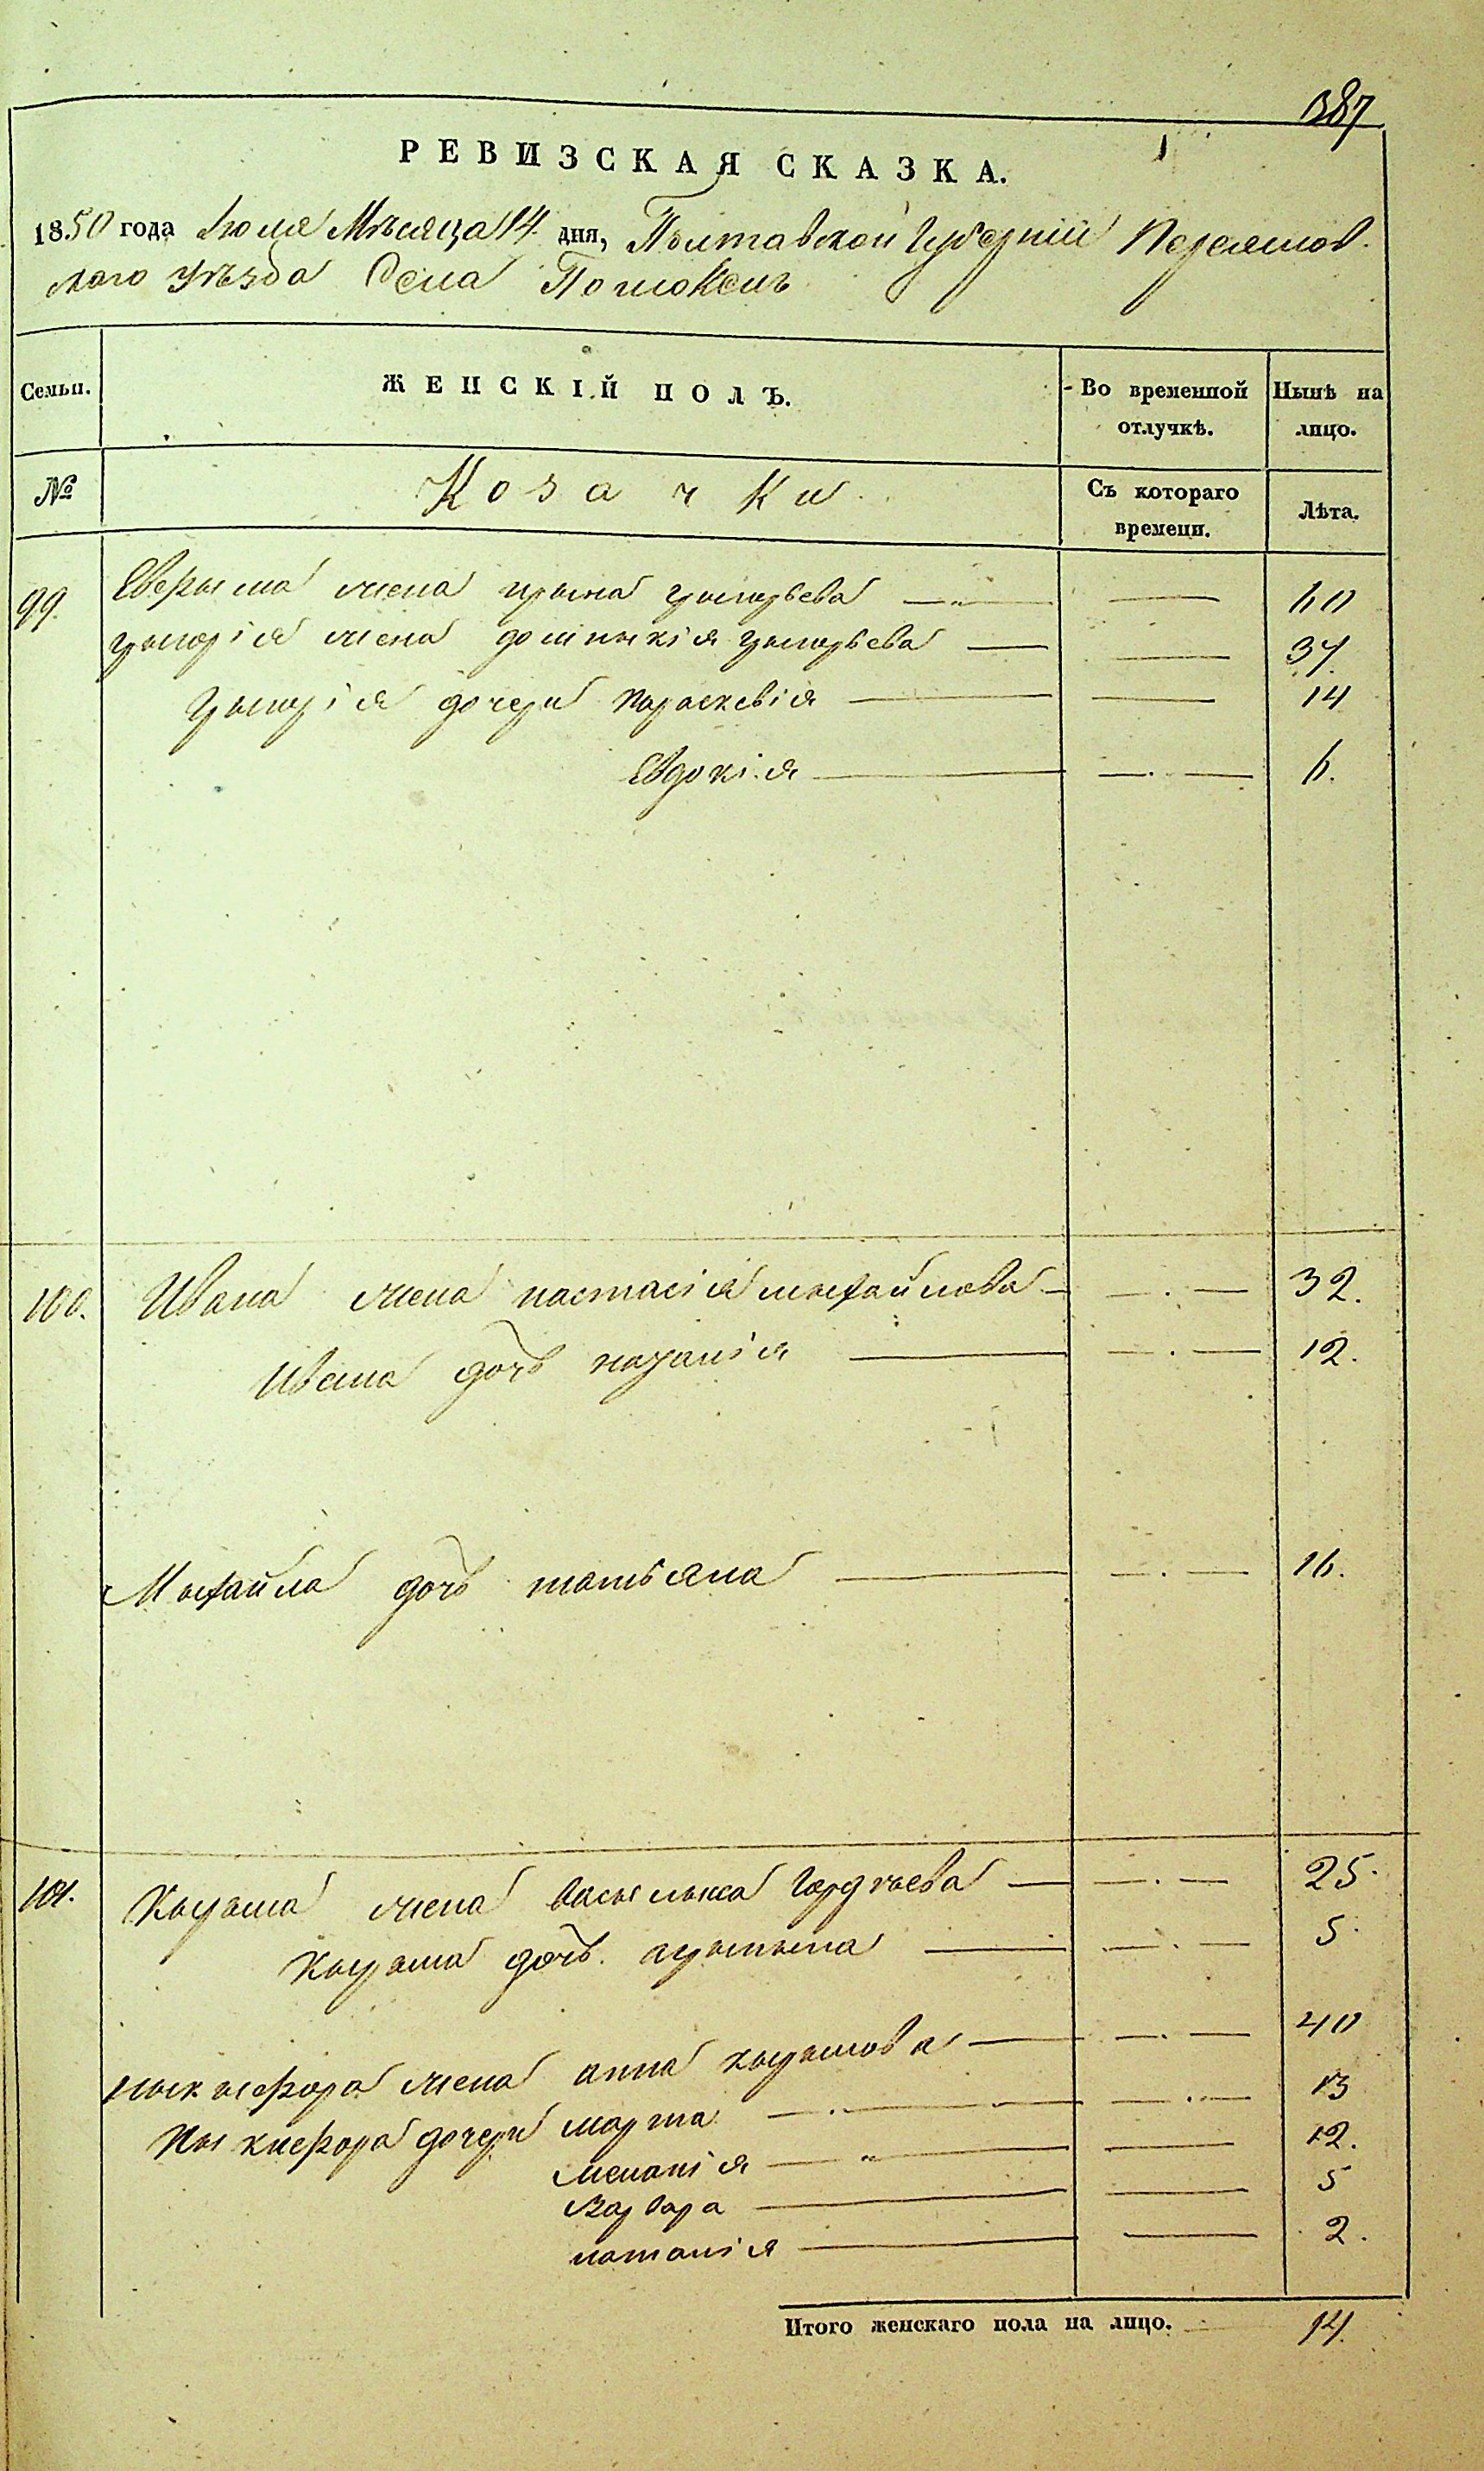 387
РЕВИЗСКАЯ СКАЗКА.
1850 года Июля Мѣсяца 14 дня, Полтавской Губерніи Переяслов-
скаго уѣзда Села Помоклей
Семьи. ЖЕНСКІЙ ПОЛЪ. Во временной отлучкѣ. Нынѣ на лицо.
№ Козачки Съ котораго времени. Лѣта.
99. жена Грыгорьева 60
Грыгорія жена домныкія Грыгорьева 37
Грыгорія дочери параскевія 14
Евдокія 6.
100. Ивана жена настасія мыхайлова 32.
Ивана дочь 12.
Мыхайла дочь татьяна 16.
101. Кырыла жена васылыса Гордѣева 25.
Кырыла дочь. 5.
Ныкыфора жена анна кырылова 40
Ныкифора дочери марта 13
меланія 12.
Варвара 5
наталія 2.
Итого женскаго пола на лицо. 14.